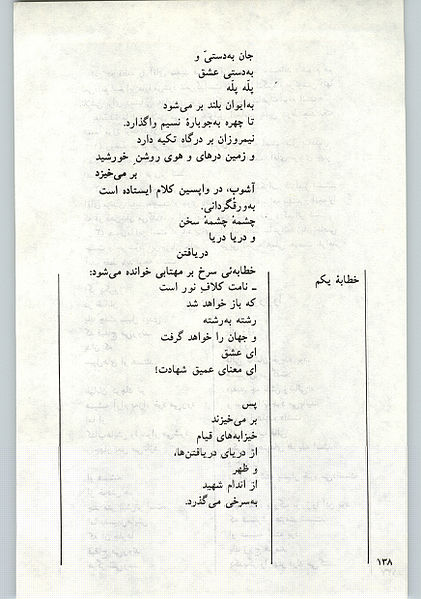 جان به‌دستیّ و
به‌دستی عشق
پلّه پلّه
به‌ایوان بلند بر می‌شود
تا چهره به‌جوبارهٔ نسیم واگذارد.
نیمروزان بر درگاه تکیه دارد
و زمین درهای و هوی روشنِ خورشید
بر می‌خیزد
آشوب، در واپسین کلام ایستاده است
به‌ورقگردانی.
چشمهٔ چشمهٔ سخن
و دریا دریا
دریافتن
خطابه‌ئی سرخ بر مهتابی خوانده می‌شود:
خطابهٔ یکم
ــ نامت کلافِ نور است
که باز خواهد شد
رشته به‌رشته
و جهان را خواهد گرفت
ای عشق
ای معنای عمیق شهادت!
پس
بر می‌خیزند
خیزابه‌های قیام
از دریای دریافتن‌ها،
و ظهر
از اندام شهید
به‌سرخی می‌گذرد.
۱۳۸